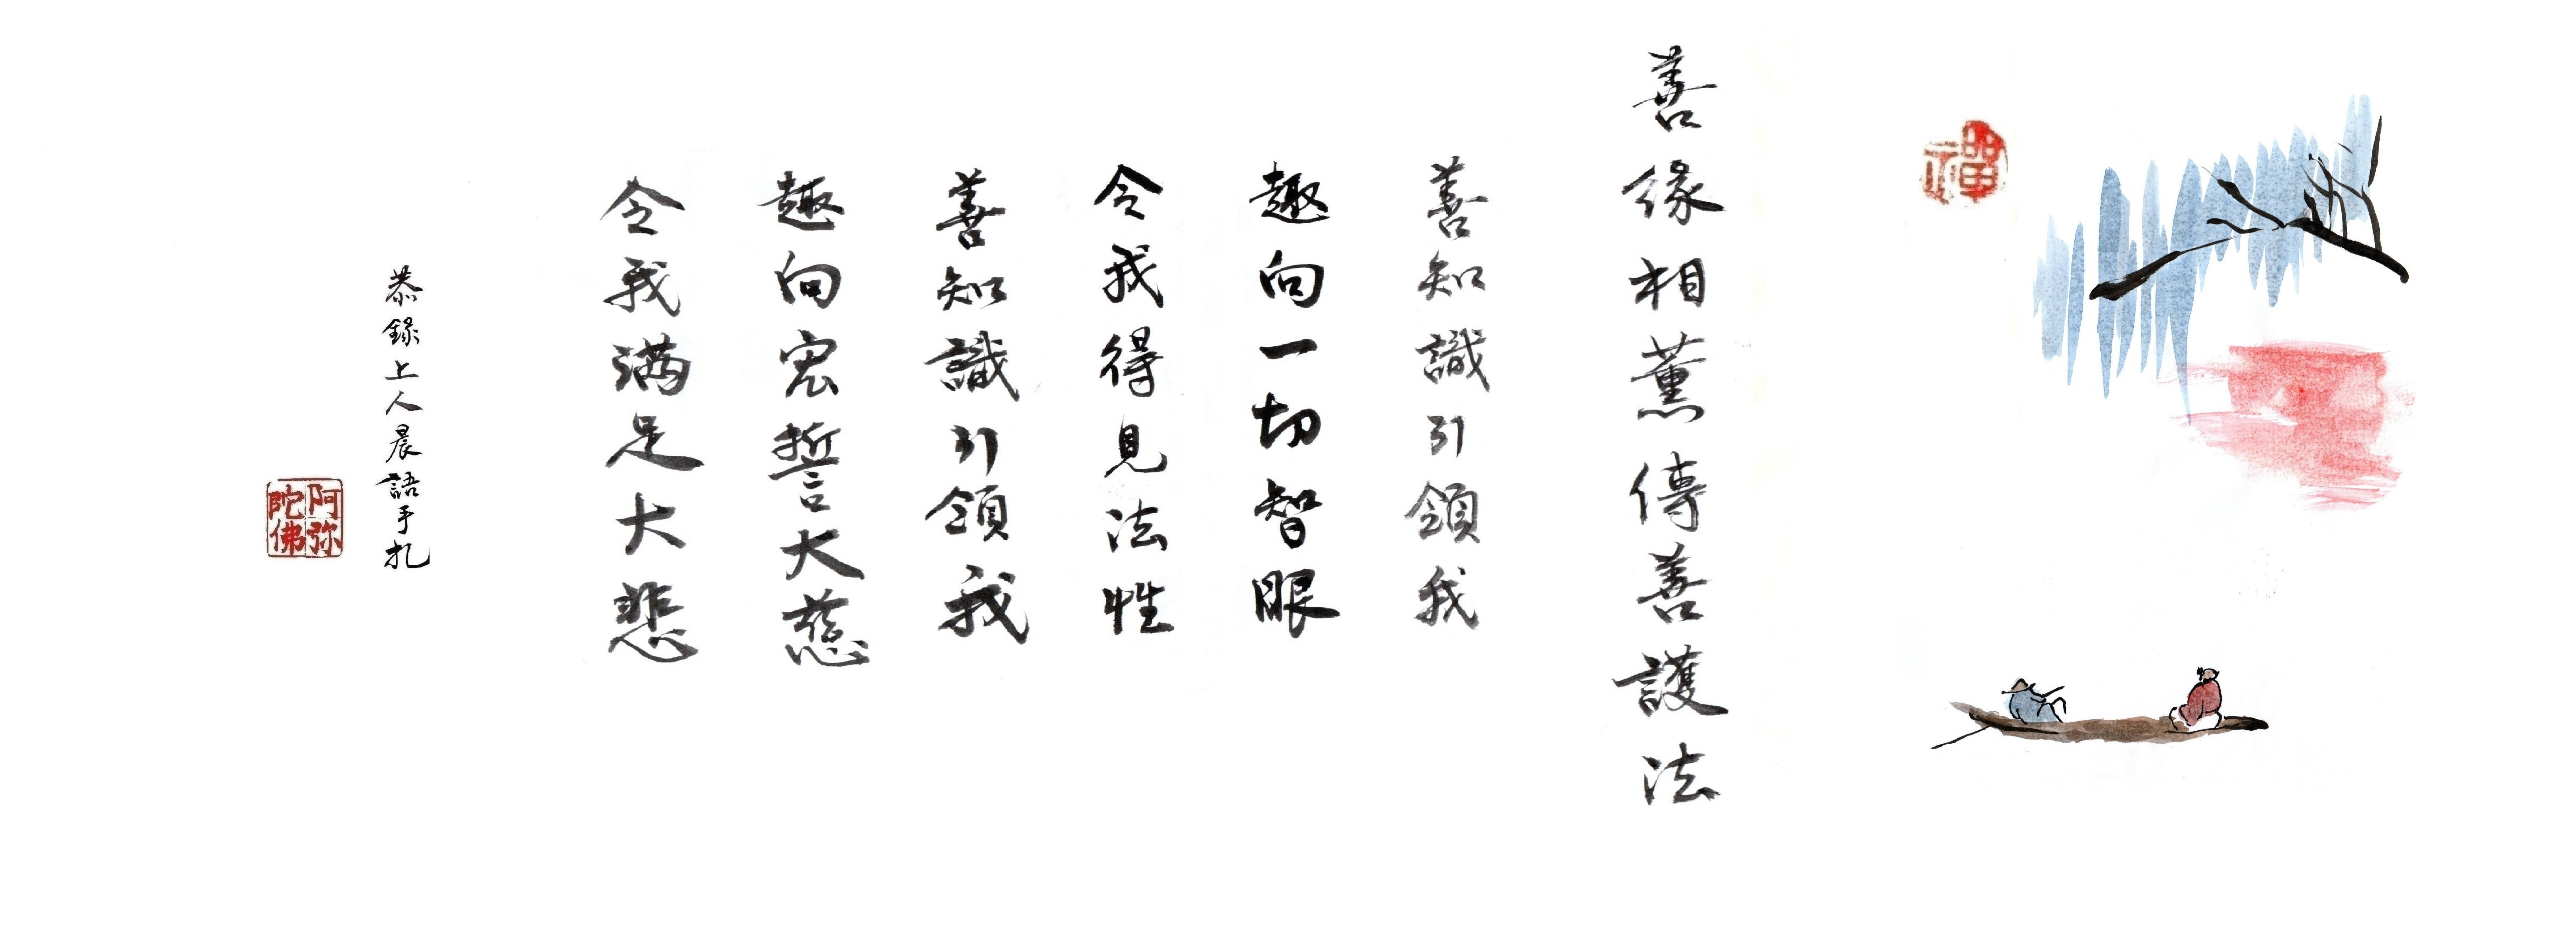 禪
善緣相薰傳善護法
善知識引領我
趣向一切智眼
令我得見法性
善知識引領我
趣向宏誓大慈
令我滿足大悲
恭錄上人晨語手札
阿弥陀佛